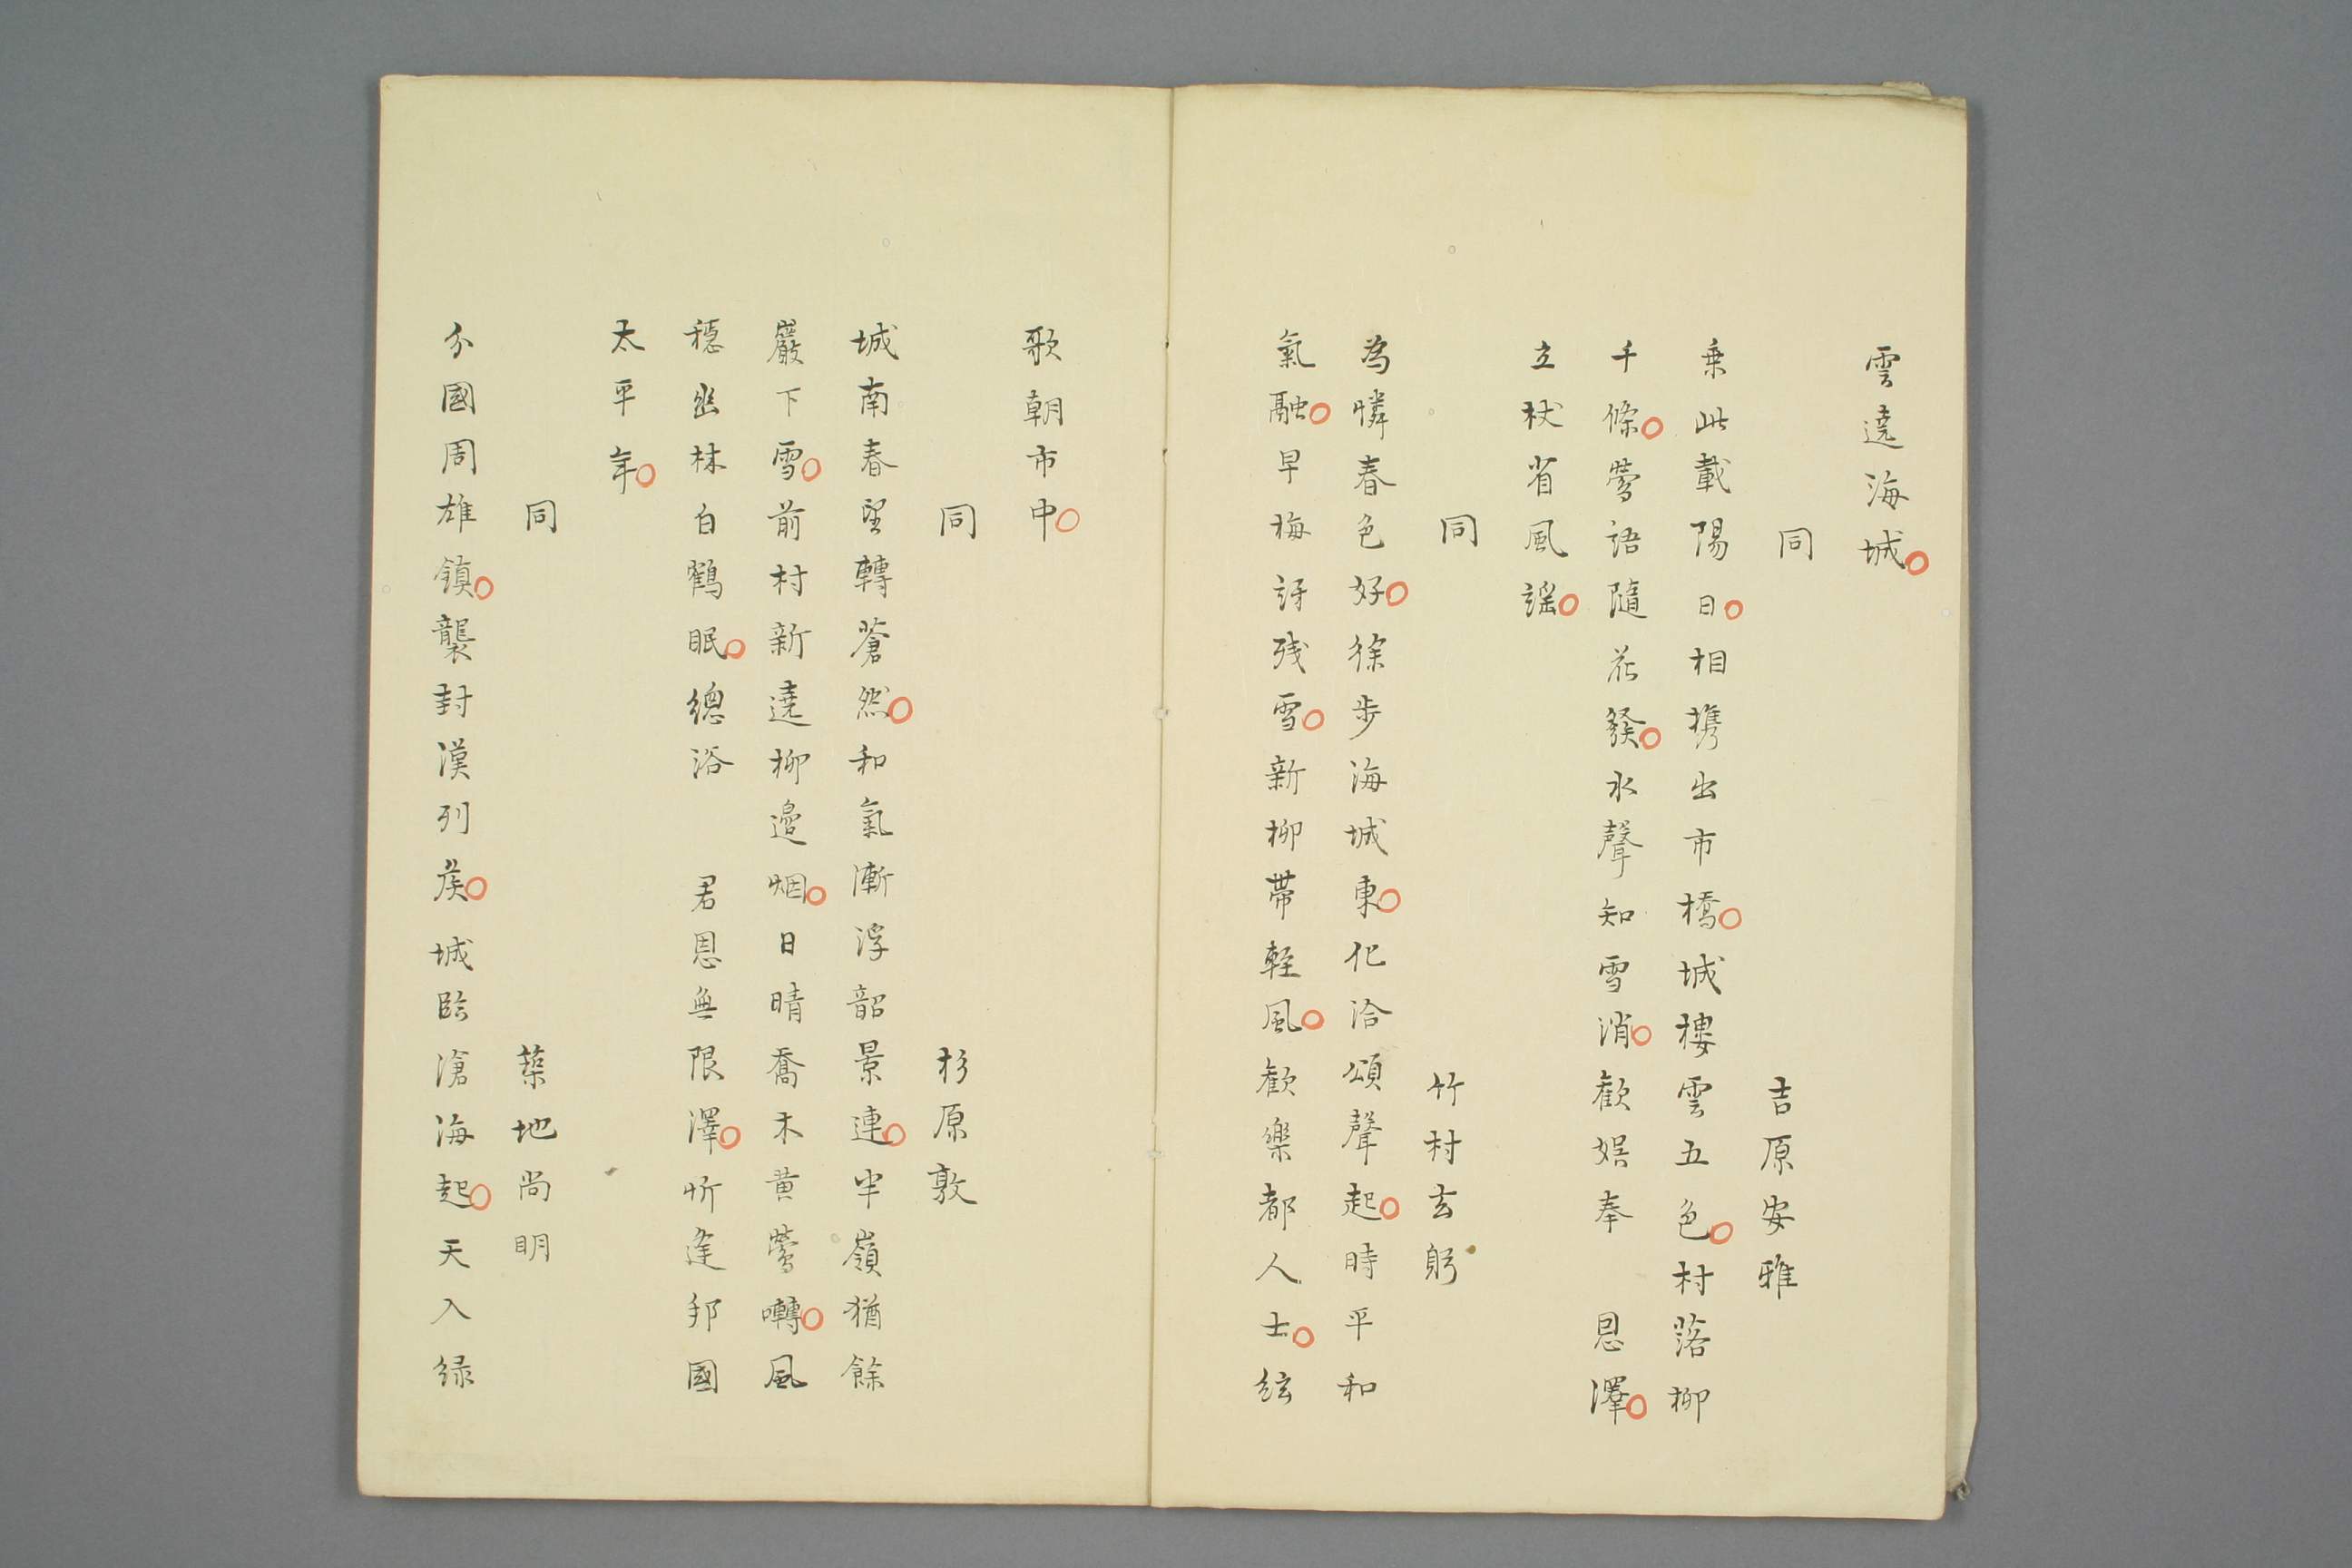 雲遶海城
同
吉原安雅
乗此載陽日相携出市橋城樓雲五色村落柳
千條鶯語隨花發水聲知雪消歡娯奉　恩澤
立杖省風謡
同
竹村玄躬
為憐春色好徐步海城東化洽頌聲起時平和
氣融早梅訝残雪新柳帯軽風歡樂都人士絃
歌朝市中
同
杉原敦
城南春望轉蒼然和氣漸浮韶景連半嶺猶餘
巖下雪前村新遶柳邉烟日晴喬木黄鶯囀風
穏幽林白鶴眠總浴　君恩無限澤忻逢邦國
太平年
同
築地尚明
分國周雄鎮襲封漢列侯城臨滄海起天入緑